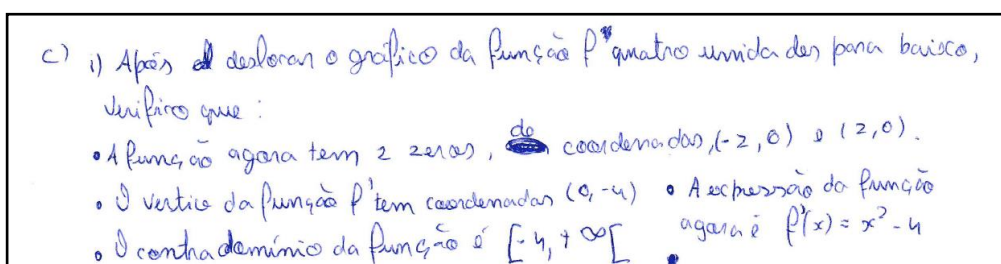 c) i) Após deslocar o gráfico da função f' quatro unidades para baixo,
verifico que :
• A função agora tem 2 zeros, de coordenadas, (-2,0) e (2,0).
• O vertice da função f' tem coordenadas (0,-4) • A expressão da função
agora é f'(x) = x² - 4
• O contradomínio da função é [-4, +∞[